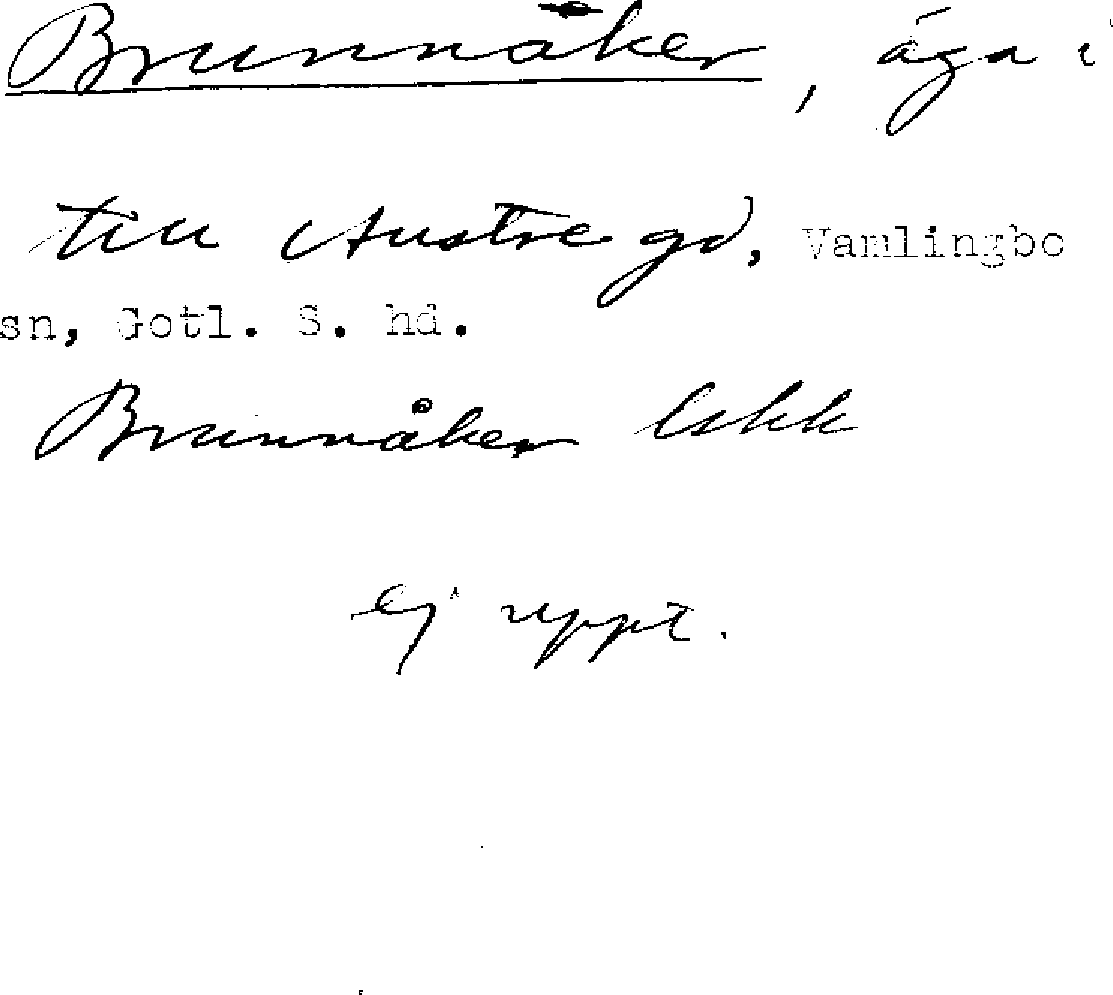 Brunnåker, äga i
till Austre gd, Vamlingbo
sn, Gotl. S. hd.
Brunnåker Cskk
ej uppt.